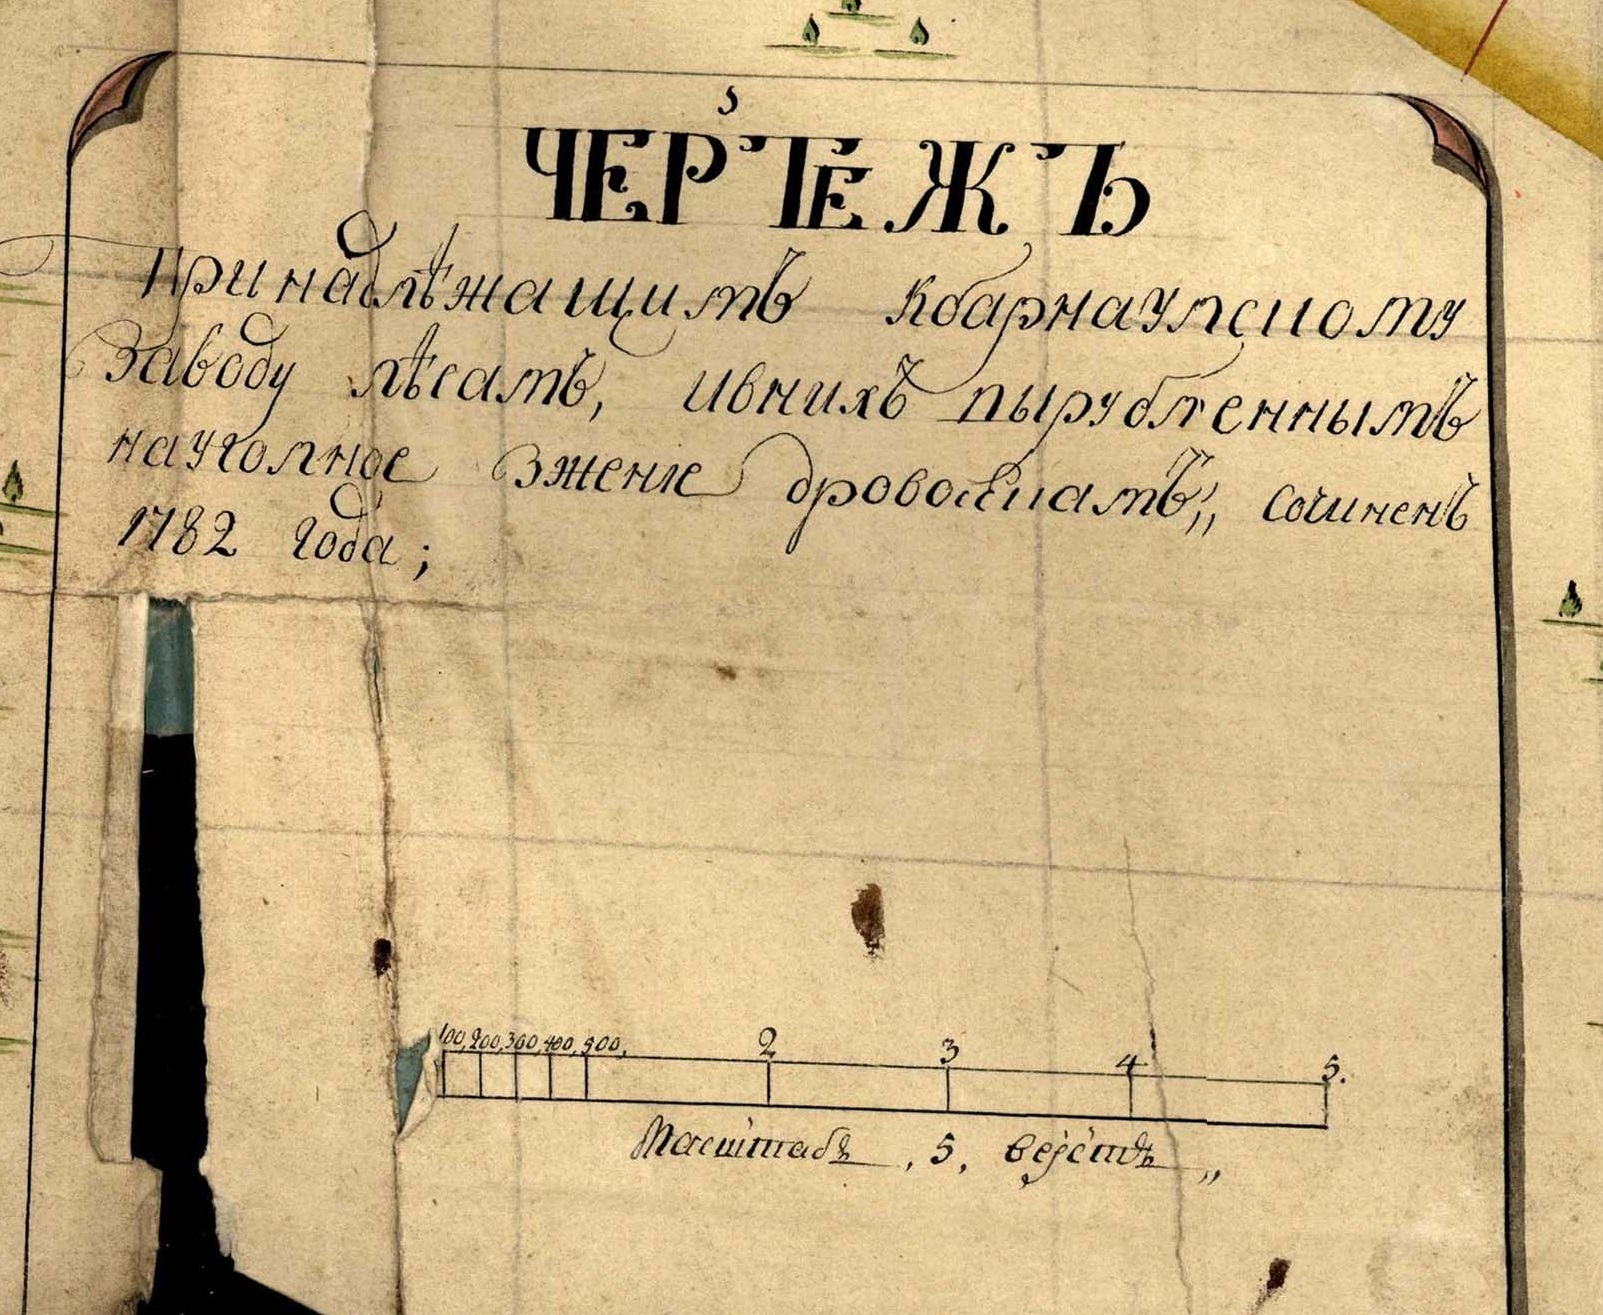 ЧЕРТЕЖЪ
Принадлѣжащимъ кбарнаулскому
Заводу лѣсамъ, ивнихъ вырубленнымъ
науголное зжение дровосекамъ,, сочиненъ
1782 года;
100, 200, 300, 400, 500, 2 3 4 5.
Масштабъ , 5, верстъ ,,